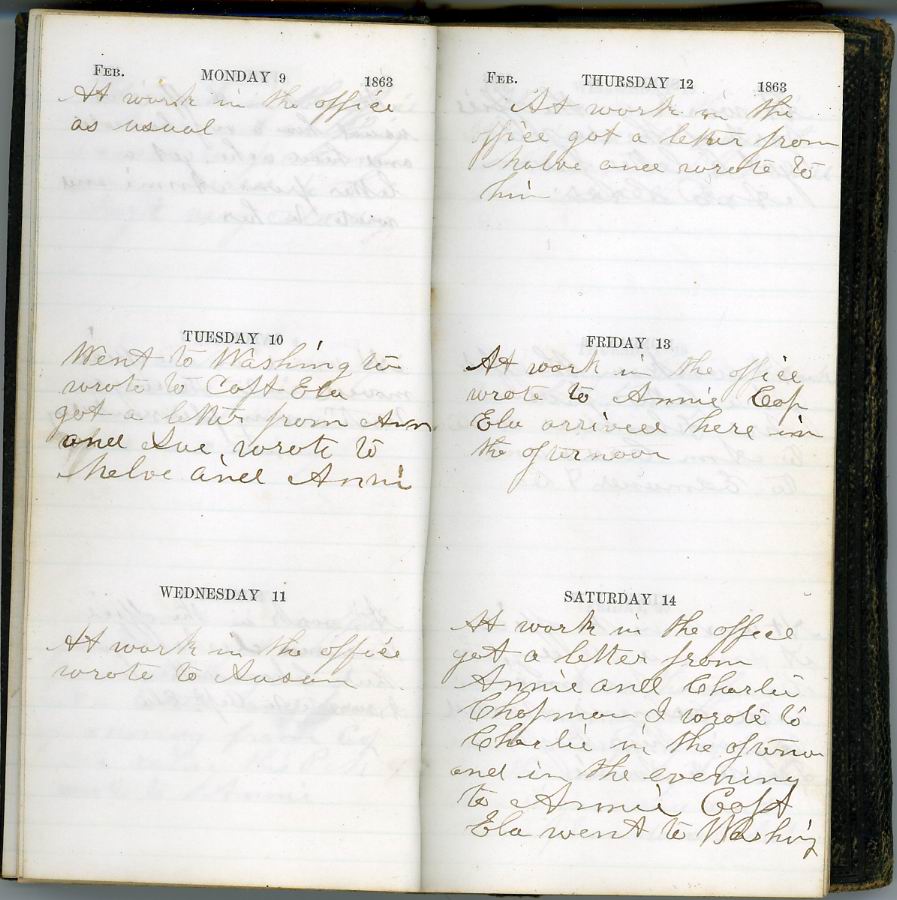 FEB. MONDAY 9 1863
At work in the office
as usual
TUESDAY 10
Went to Washington
wrote to Capt Ela
got a letter from Ann
and Sue, wrote to
and Anni
WEDNESDAY 11
At work in the office
wrote to Susan
FEB. THURSDAY 12 1863
At work in the
office got a letter from
and wrote to
him
FRIDAY 13
At work in the office
wrote to Annie Cap
Ela arrived here in
the afternoon
SATURDAY 14
At work in the office
got a letter from
Annie and Charlie
Chapman I wrote to
Charlie in the afternoon
and in the evening
to Annie Capt
Ela went to Washing